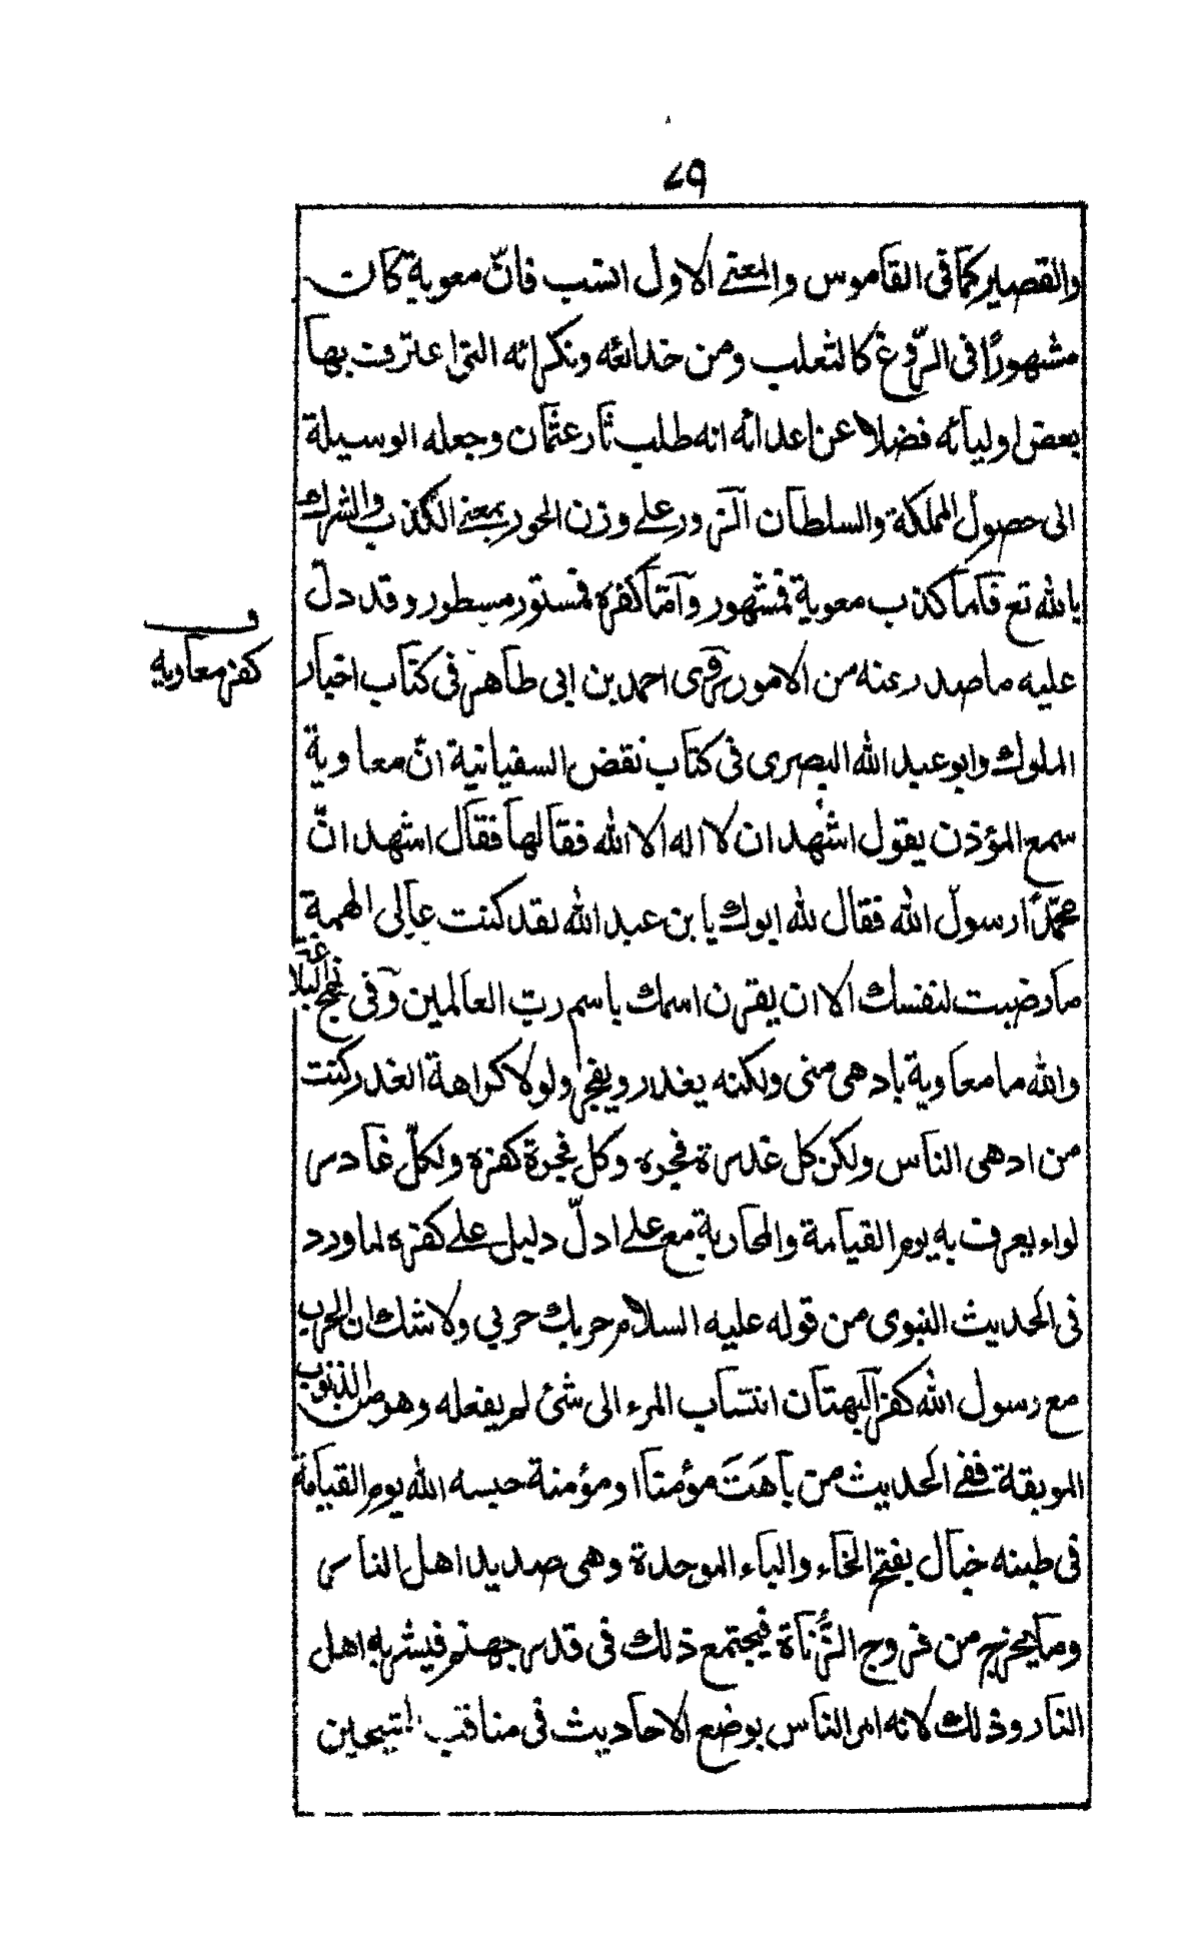 ٤٩
والقصير كما فى القاموس والمعنے الاول انسب فانّ معوية كان
مشهورًا فى الرّوغ كالثعلب ومن خدائعه ونكرائه التى اعترفت بها
بعض اوليائه فضلا عن اعدائه انه طلب ثار عثمان وجعله الوسيلة
الى حصول المملكة والسلطان الزور علے وزن الحور بمعنے الكذب والشرك
بالله تع فاما كذب معوية فمشهور وامّا كفره فمستور مسطور وقد دلّ
عليه ما صدر عنه من الامور روى احمد بن ابى طاهر فى كتاب اخبار
ف
كفر معاويه
الملوك وابو عبد الله البصرى فى كتاب نقض السفيانية انّ معاوية
سمع المؤذن يقول اشهد ان لا اله الا الله فقالها فقال اشهد انّ
محمّدًا رسول الله فقال لله ابوك يا بن عبد الله لقد كنت عالى الهمة
ما رضيت لنفسك الا ان يقرن اسمك باسم ربّ العالمين وفى نهج البلاغة
والله ما معاوية بادهى منى ولكنه يغدر ويفجر ولولا كراهة الغدر كنت
من ادهى الناس ولكن كل غدرة فجره وكل فجرة كفره ولكلّ غادر
لواء يعرف به يوم القيامة والمحاربة مع علے ادلّ دليل علے كفره لما ورد
فى الحديث النبوى من قوله عليه السلام حربك حربي ولا شك ان الحرب
مع رسول الله كفر البهتان انتساب المرء الى شئ لم يفعله وهو من الذنوب
الموبقة ففے الحديث من باهَتَ مؤمنا او مؤمنة حبسه الله يوم القيامة
فى طينه خبال بفتح الخاء والباء الموحدة وهى صديد اهل الناس
وما يخرج من فروج الزُّناة فيجتمع ذلك فى قدر جهنم فيشربه اهل
النار وذلك لانه امر الناس بوضع الاحاديث فى مناقب